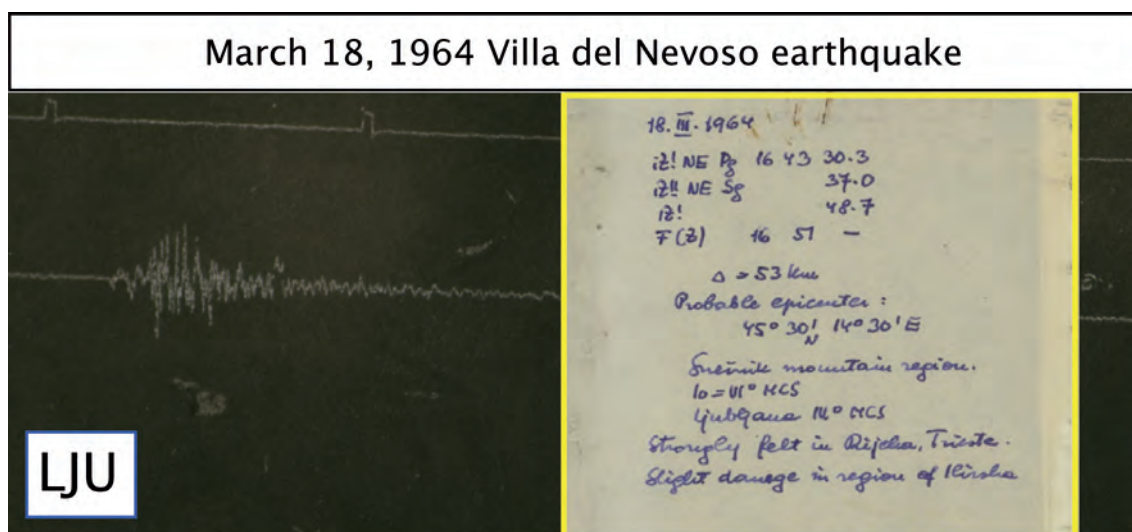 March 18, 1964 Villa del Nevoso earthquake
18. III. 1964
iZ! NE Pg 16 43 30.3
iZ!! NE Sg 37.0
iZ! 48.7
F(Z) 16 51 —
Δ = 53 km
Probable epicenter:
45° 30' N 14° 30' E
Snežnik mountain region.
Io = VI° MCS
Ljubljana IV° MCS
Strongly felt in Rijeka, Trieste.
Slight damage in region of
LJU